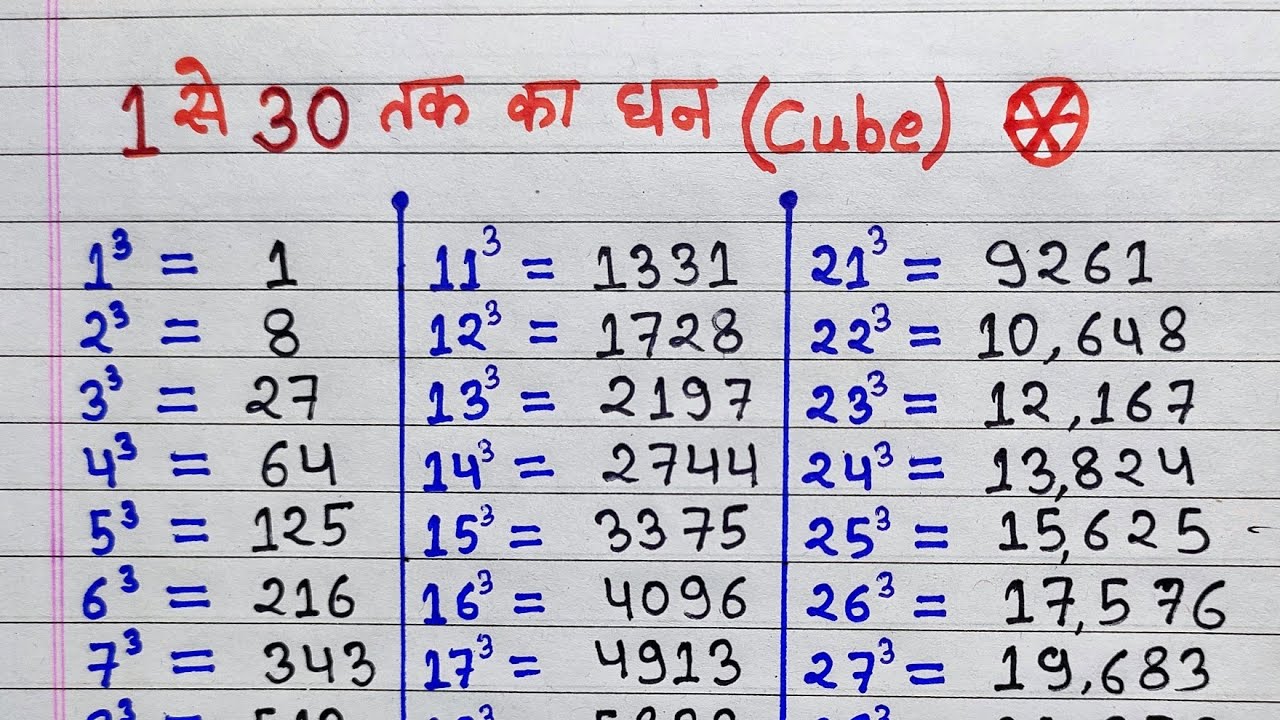 1 से 30 तक का घन (Cube)
1³ = 1
2³ = 8
3³ = 27
4³ = 64
5³ = 125
6³ = 216
7³ = 343
11³ = 1331
12³ = 1728
13³ = 2197
14³ = 2744
15³ = 3375
16³ = 4096
17³ = 4913
21³ = 9261
22³ = 10,648
23³ = 12,167
24³ = 13,824
25³ = 15,625
26³ = 17,576
27³ = 19,683